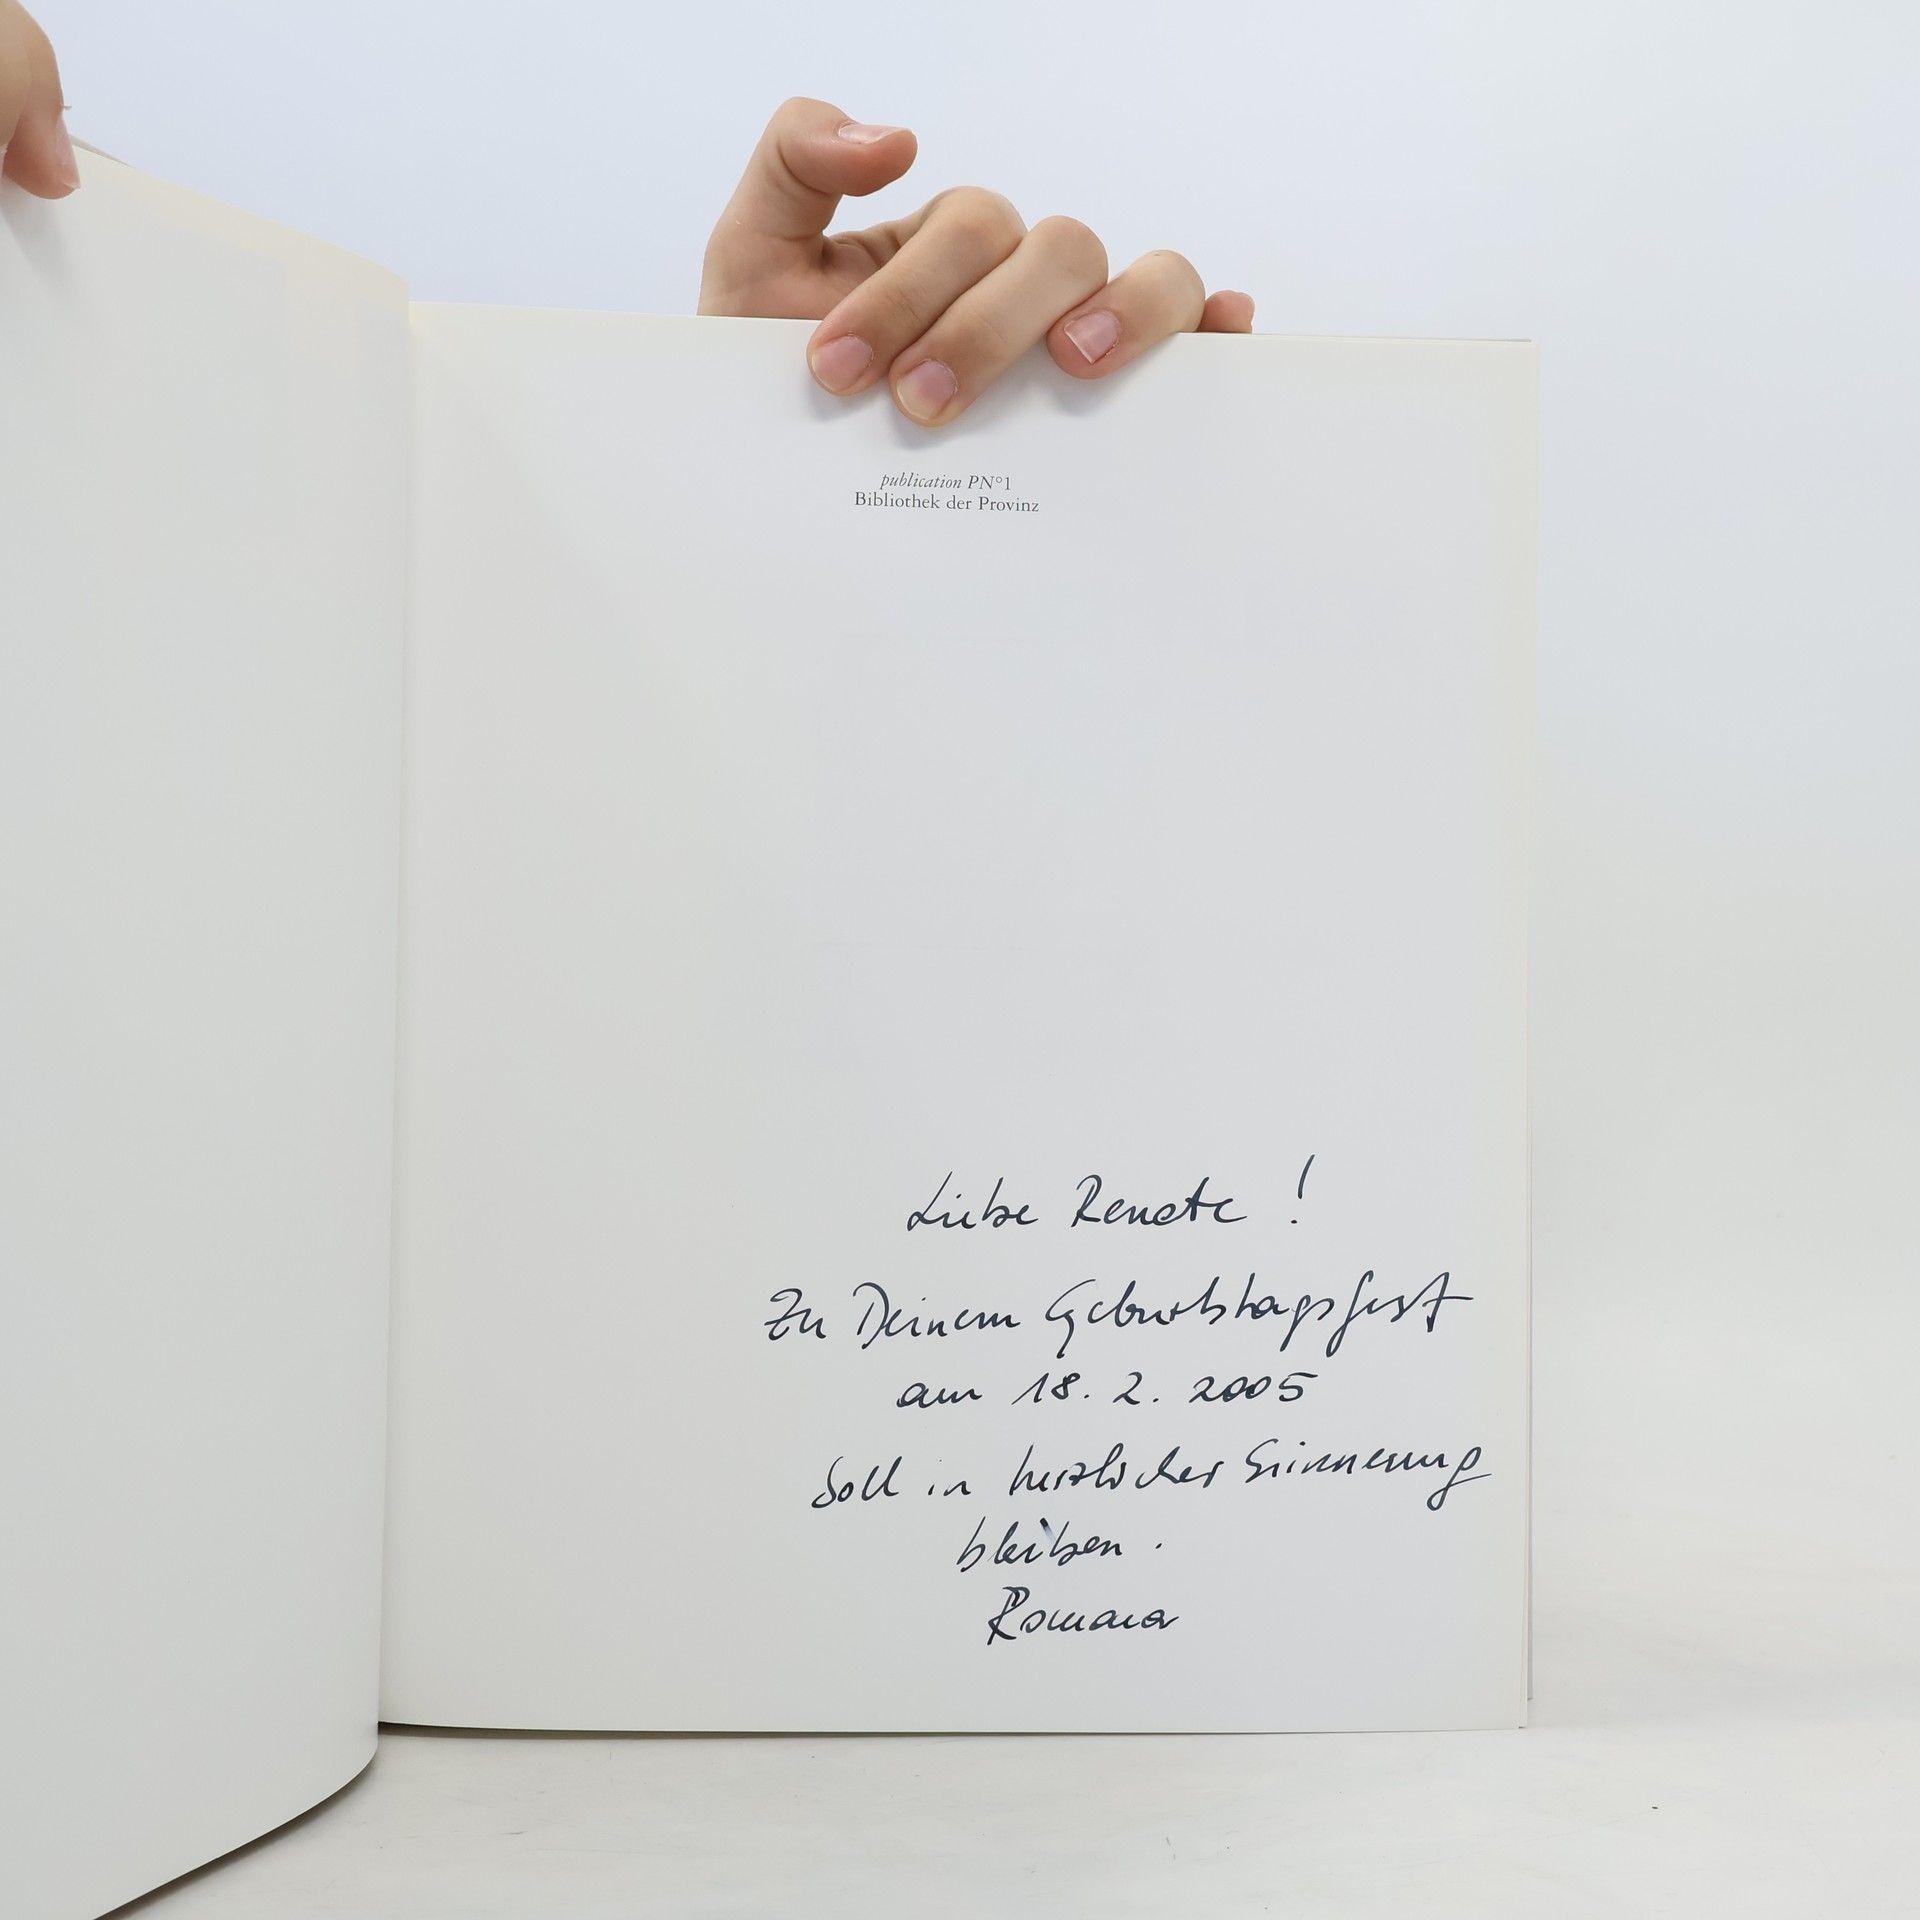 publication PN°1
Bibliothek der Provinz
Liebe Renate !
Zu Deinem Geburtstagsfest
am 18. 2. 2005
Soll in herzlicher Erinnerung
bleiben.
Romana